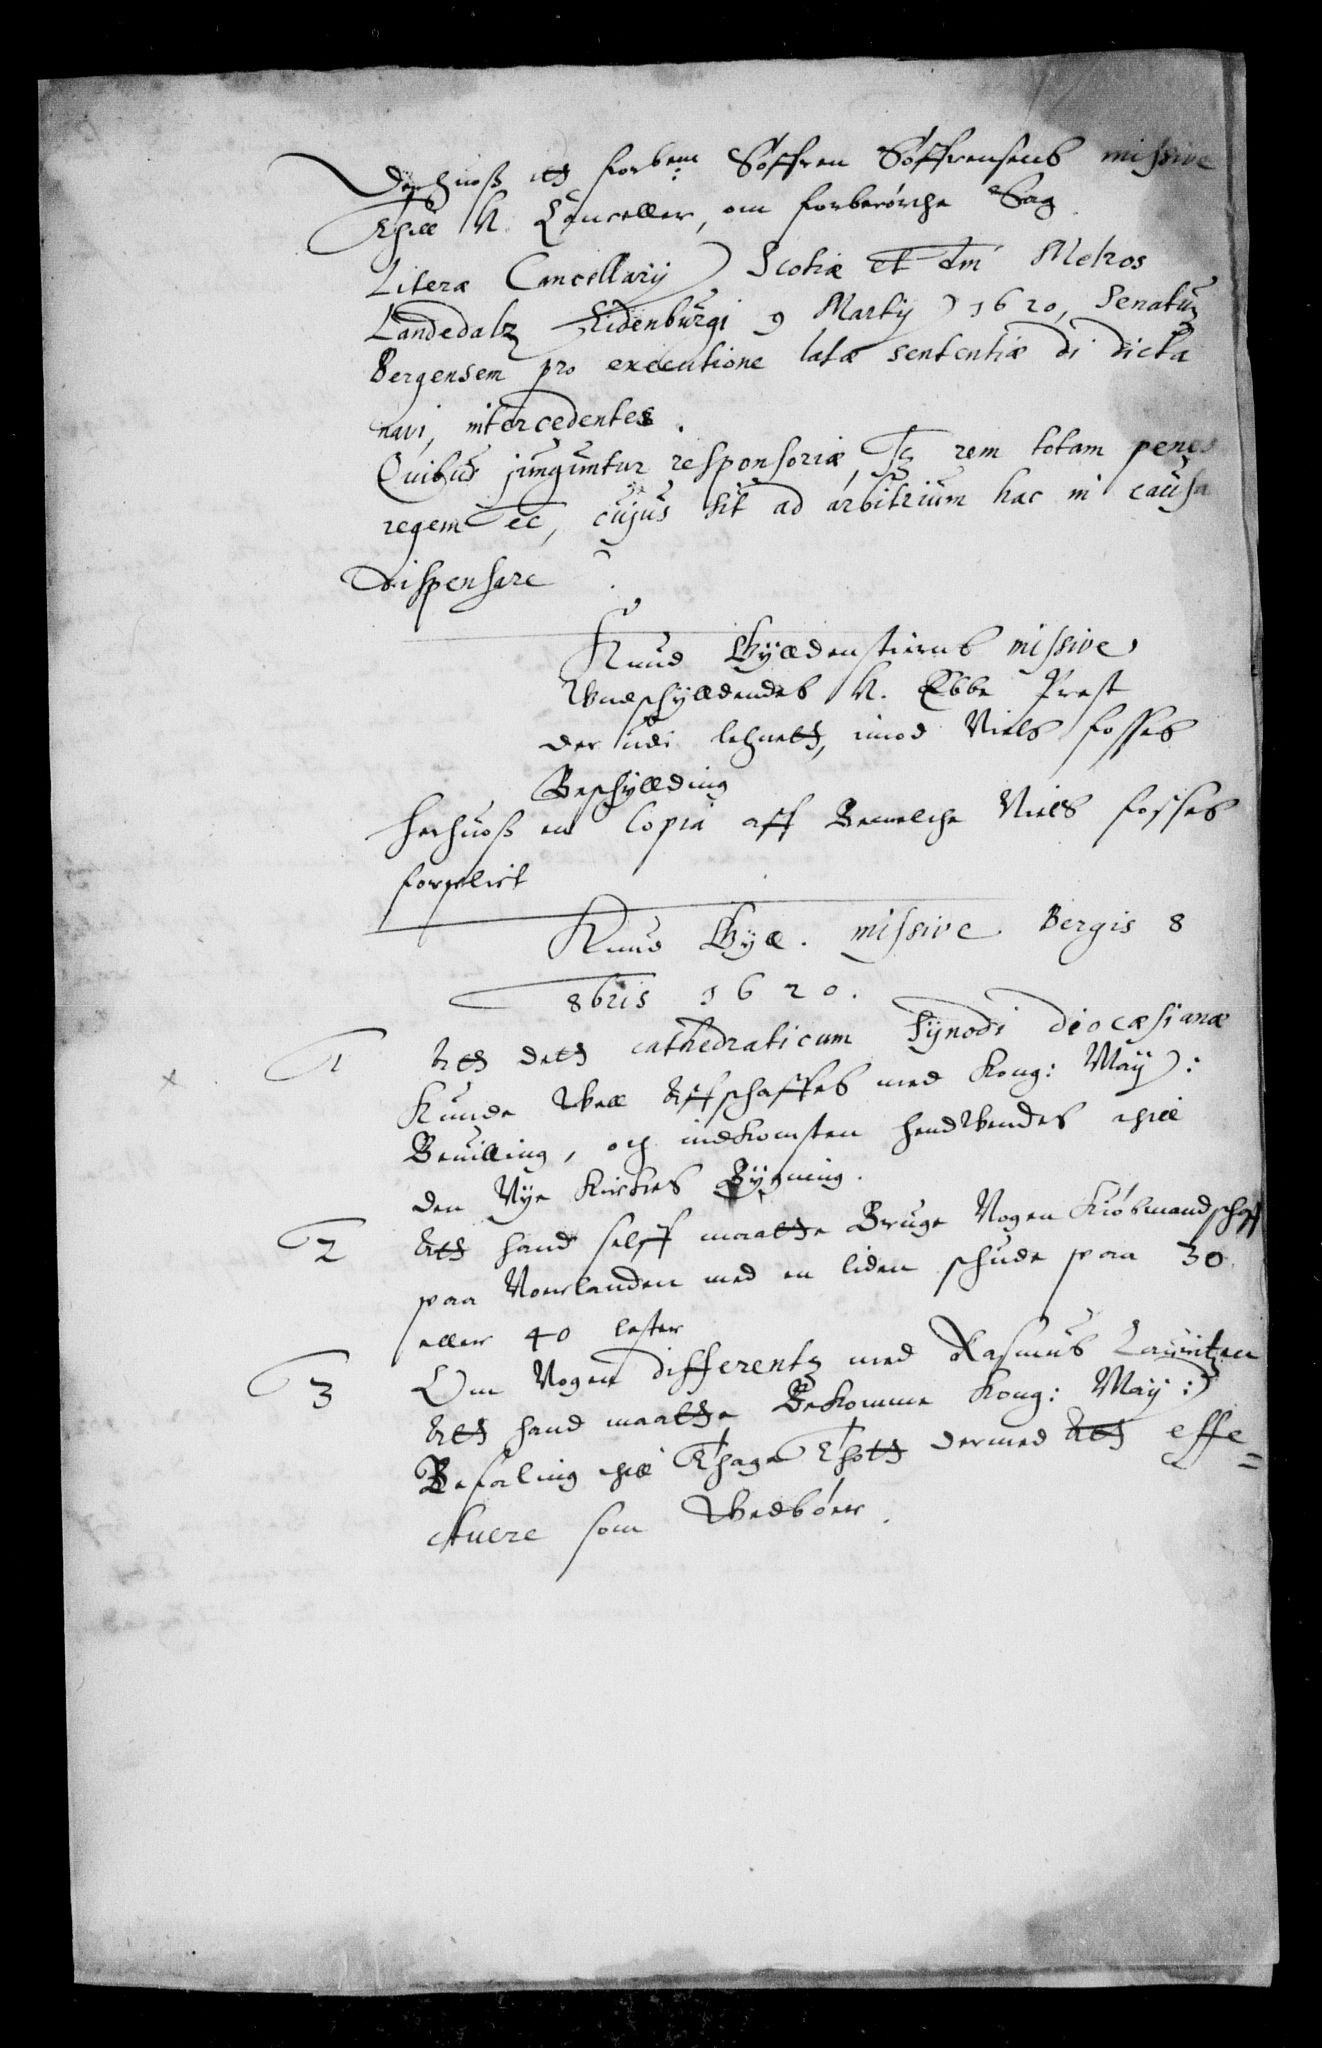 Derhuoß itt forbem: Søffren Søffrensens missive
Thill H. Canceller, om forberørche Sag
Literæ Cancellarij Scotiæ et dni Melros
Landedalz Eidenburgi 9 Martij 1620, Senatum
Bergensem pro executione latæ sententiæ di dicta
navi, intercedentes.
Quibus junguntur responsoriæ, rem totam penes
regem ec, cujus sit ad arbitrium hac in causa
dispensare.
Knud Gyldenstierns missive
Wndschylldendes H. Ebbe Prest
der udi lehnett, imod Niels fosses
Beschyllding
herhuoß en Copia aff Bemelche Niels fosses
forplict
Knud Gyll. missive Bergis 8
8bris 1620.
1 Att dett cathedraticum Synodi diocæsianæ
Kunde Well Affschaffes med Kong: Maij:
Beuilling, och indkomsten hendWendes thill
den Nye Kirckes Bygning.
2 Att hand selff maatte Bruge Nogen Kiøbmandschaff
paa Norlanden med en liden schude paa 30
eller 40 lester
3 Om Nogen differentz med Rasmus Lauritzen
Att hand maatte Bekomme Kong: Maij:
Befaling thill Thage Thott dermed Att effe=
ctuere som Wedbøer.